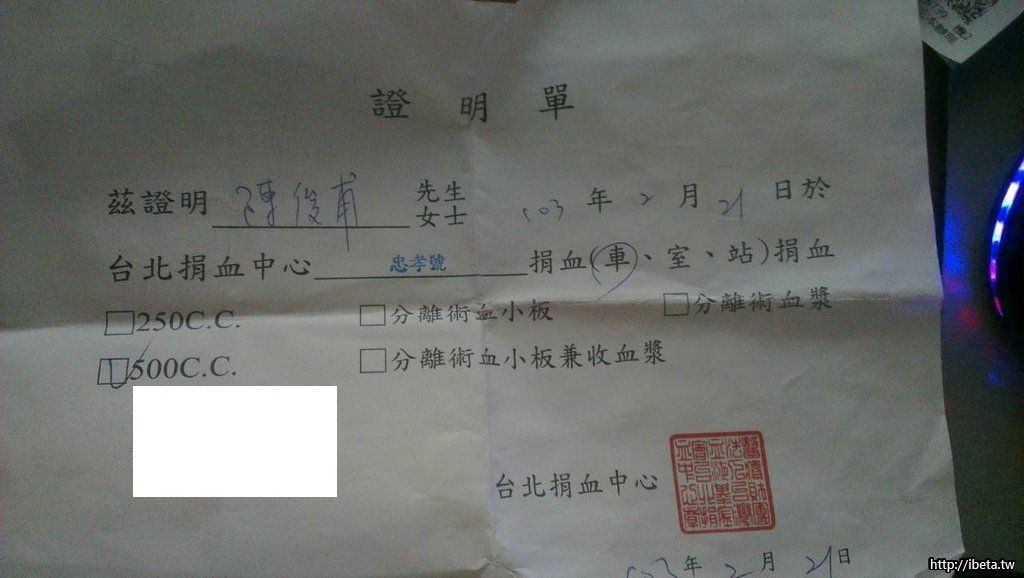 證明單
茲證明 陳俊甫 先生 女士 103 年 2 月 21 日於
台北捐血中心 忠孝號 捐血(車、室、站)捐血
□250C.C. □分離術血小板 □分離術血漿
☑500C.C. □分離術血小板兼收血漿
台北捐血中心
103 年 2 月 21 日
http://ibeta.tw